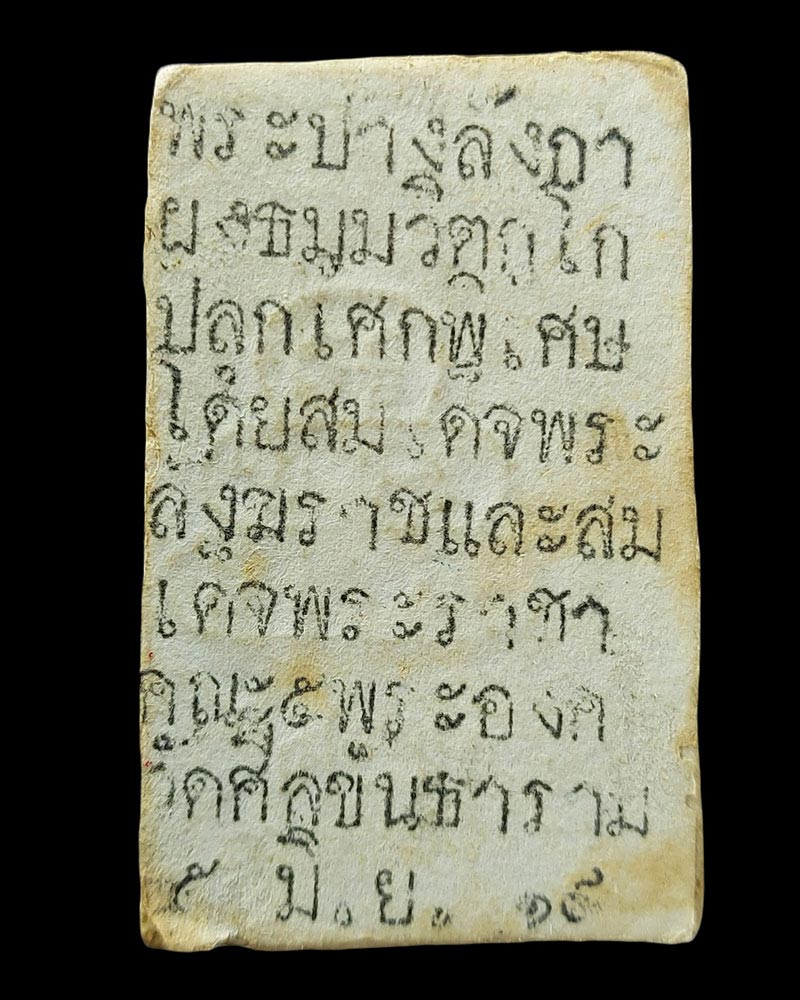 พระปางลังกา
ผงธมฺมวิตกฺโก
ปลุกเศกพิเศษ
โดยสมเดจพระ
สังฆราชและสม
เดจพระราชา
คุณะ๕พระองค
วัดศีลขันธาราม
๕ มิ.ย. ๑๕